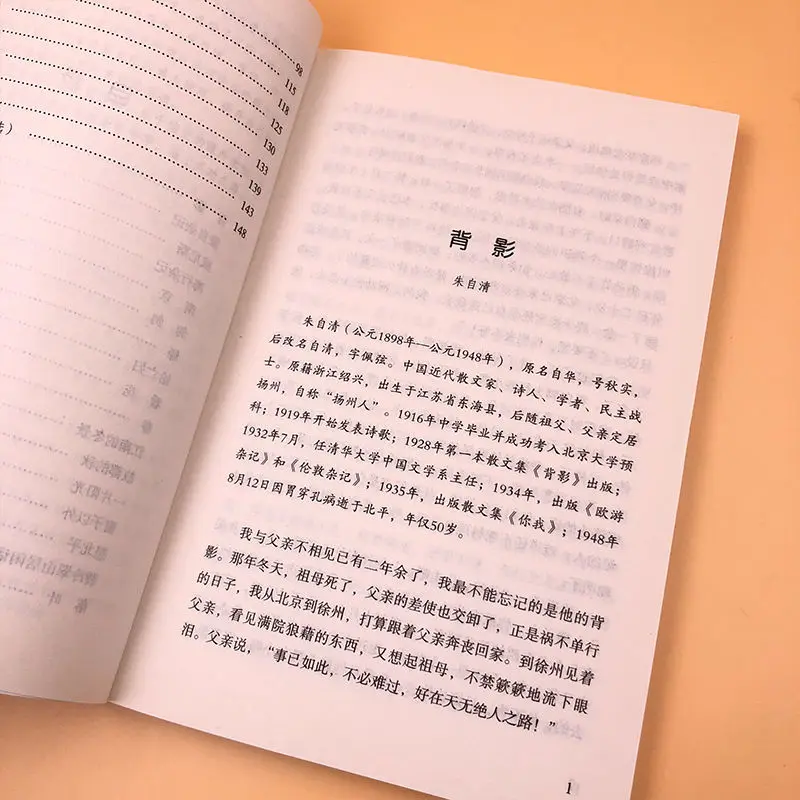 98
115
118
125
） 130
133
139
143
148
背 影
朱自清
朱自清（公元1898年—公元1948年），原名自华，号秋实，
后改名自清，字佩弦。中国近代散文家、诗人、学者、民主战
士。原籍浙江绍兴，出生于江苏省东海县，后随祖父、父亲定居
扬州，自称“扬州人”。1916年中学毕业并成功考入北京大学预
科；1919年开始发表诗歌；1928年第一本散文集《背影》出版；
1932年7月，任清华大学中国文学系主任；1934年，出版《欧游
杂记》和《伦敦杂记》；1935年，出版散文集《你我》；1948年
8月12日因胃穿孔病逝于北平，年仅50岁。
我与父亲不相见已有二年余了，我最不能忘记的是他的背
影。那年冬天，祖母死了，父亲的差使也交卸了，正是祸不单行
的日子，我从北京到徐州，打算跟着父亲奔丧回家。到徐州见着
父亲，看见满院狼藉的东西，又想起祖母，不禁簌簌地流下眼
泪。父亲说，“事已如此，不必难过，好在天无绝人之路！”
1